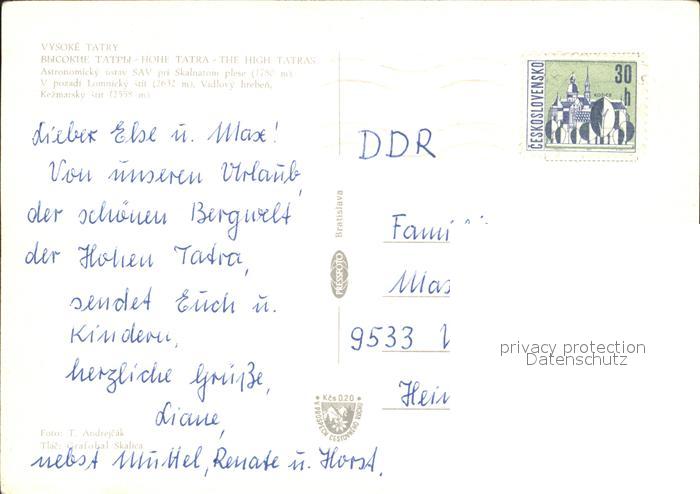 VYSOKÉ TATRY
ВЫСОКИЕ ТАТРЫ - HOHE TATRA - THE HIGH TATRAS
Astronomický ústav SAV pri Skalnatom plese (1780 m).
V pozadí Lomnický štít (2632 m), Vidlový hrebeň,
Kežmarský štít (2558 m)
Lieber Else u. Max!
Von unseren Urlaub,
der schönen Bergwelt
der Hohen Tatra,
sendet Euch u.
Kindern,
herzliche Grüße,
Liane,
nebst Muttel, Renate u. Horst.
Foto: T. Andrejčák
Tlač: Grafobal Skalica
Bratislava
PRESSFOTO
Kčs 0.20
V PROSPECH CESTOVNÉHO RUCHU
ČESKOSLOVENSKO
30 h
KOŠICE
DDR
Fami
Max
9533
Hein
privacy protection
Datenschutz